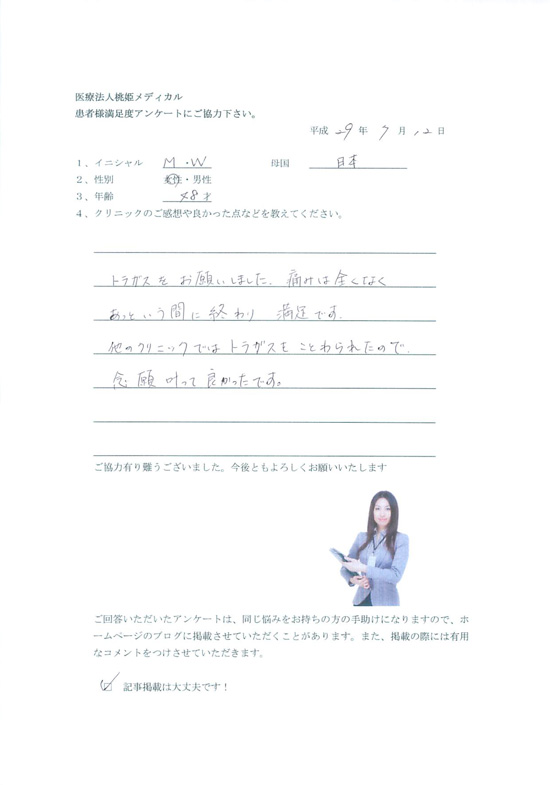 医療法人桃姫メディカル
患者様満足度アンケートにご協力下さい。
平成 29 年 7 月 12 日
1、イニシャル M・W 母国 日本
2、性別 女性・男性
3、年齢 48才
4、クリニックのご感想や良かった点などを教えてください。
トラガスをお願いしました。痛みは全くなく
あっという間に終わり 満足です。
他のクリニックではトラガスをことわられたので、
念願叶って良かったです。
ご協力有り難うございました。今後ともよろしくお願いいたします
ご回答いただいたアンケートは、同じ悩みをお持ちの方の手助けになりますので、ホ
ームページのブログに掲載させていただくことがあります。また、掲載の際には有用
なコメントをつけさせていただきます。
☑ 記事掲載は大丈夫です！